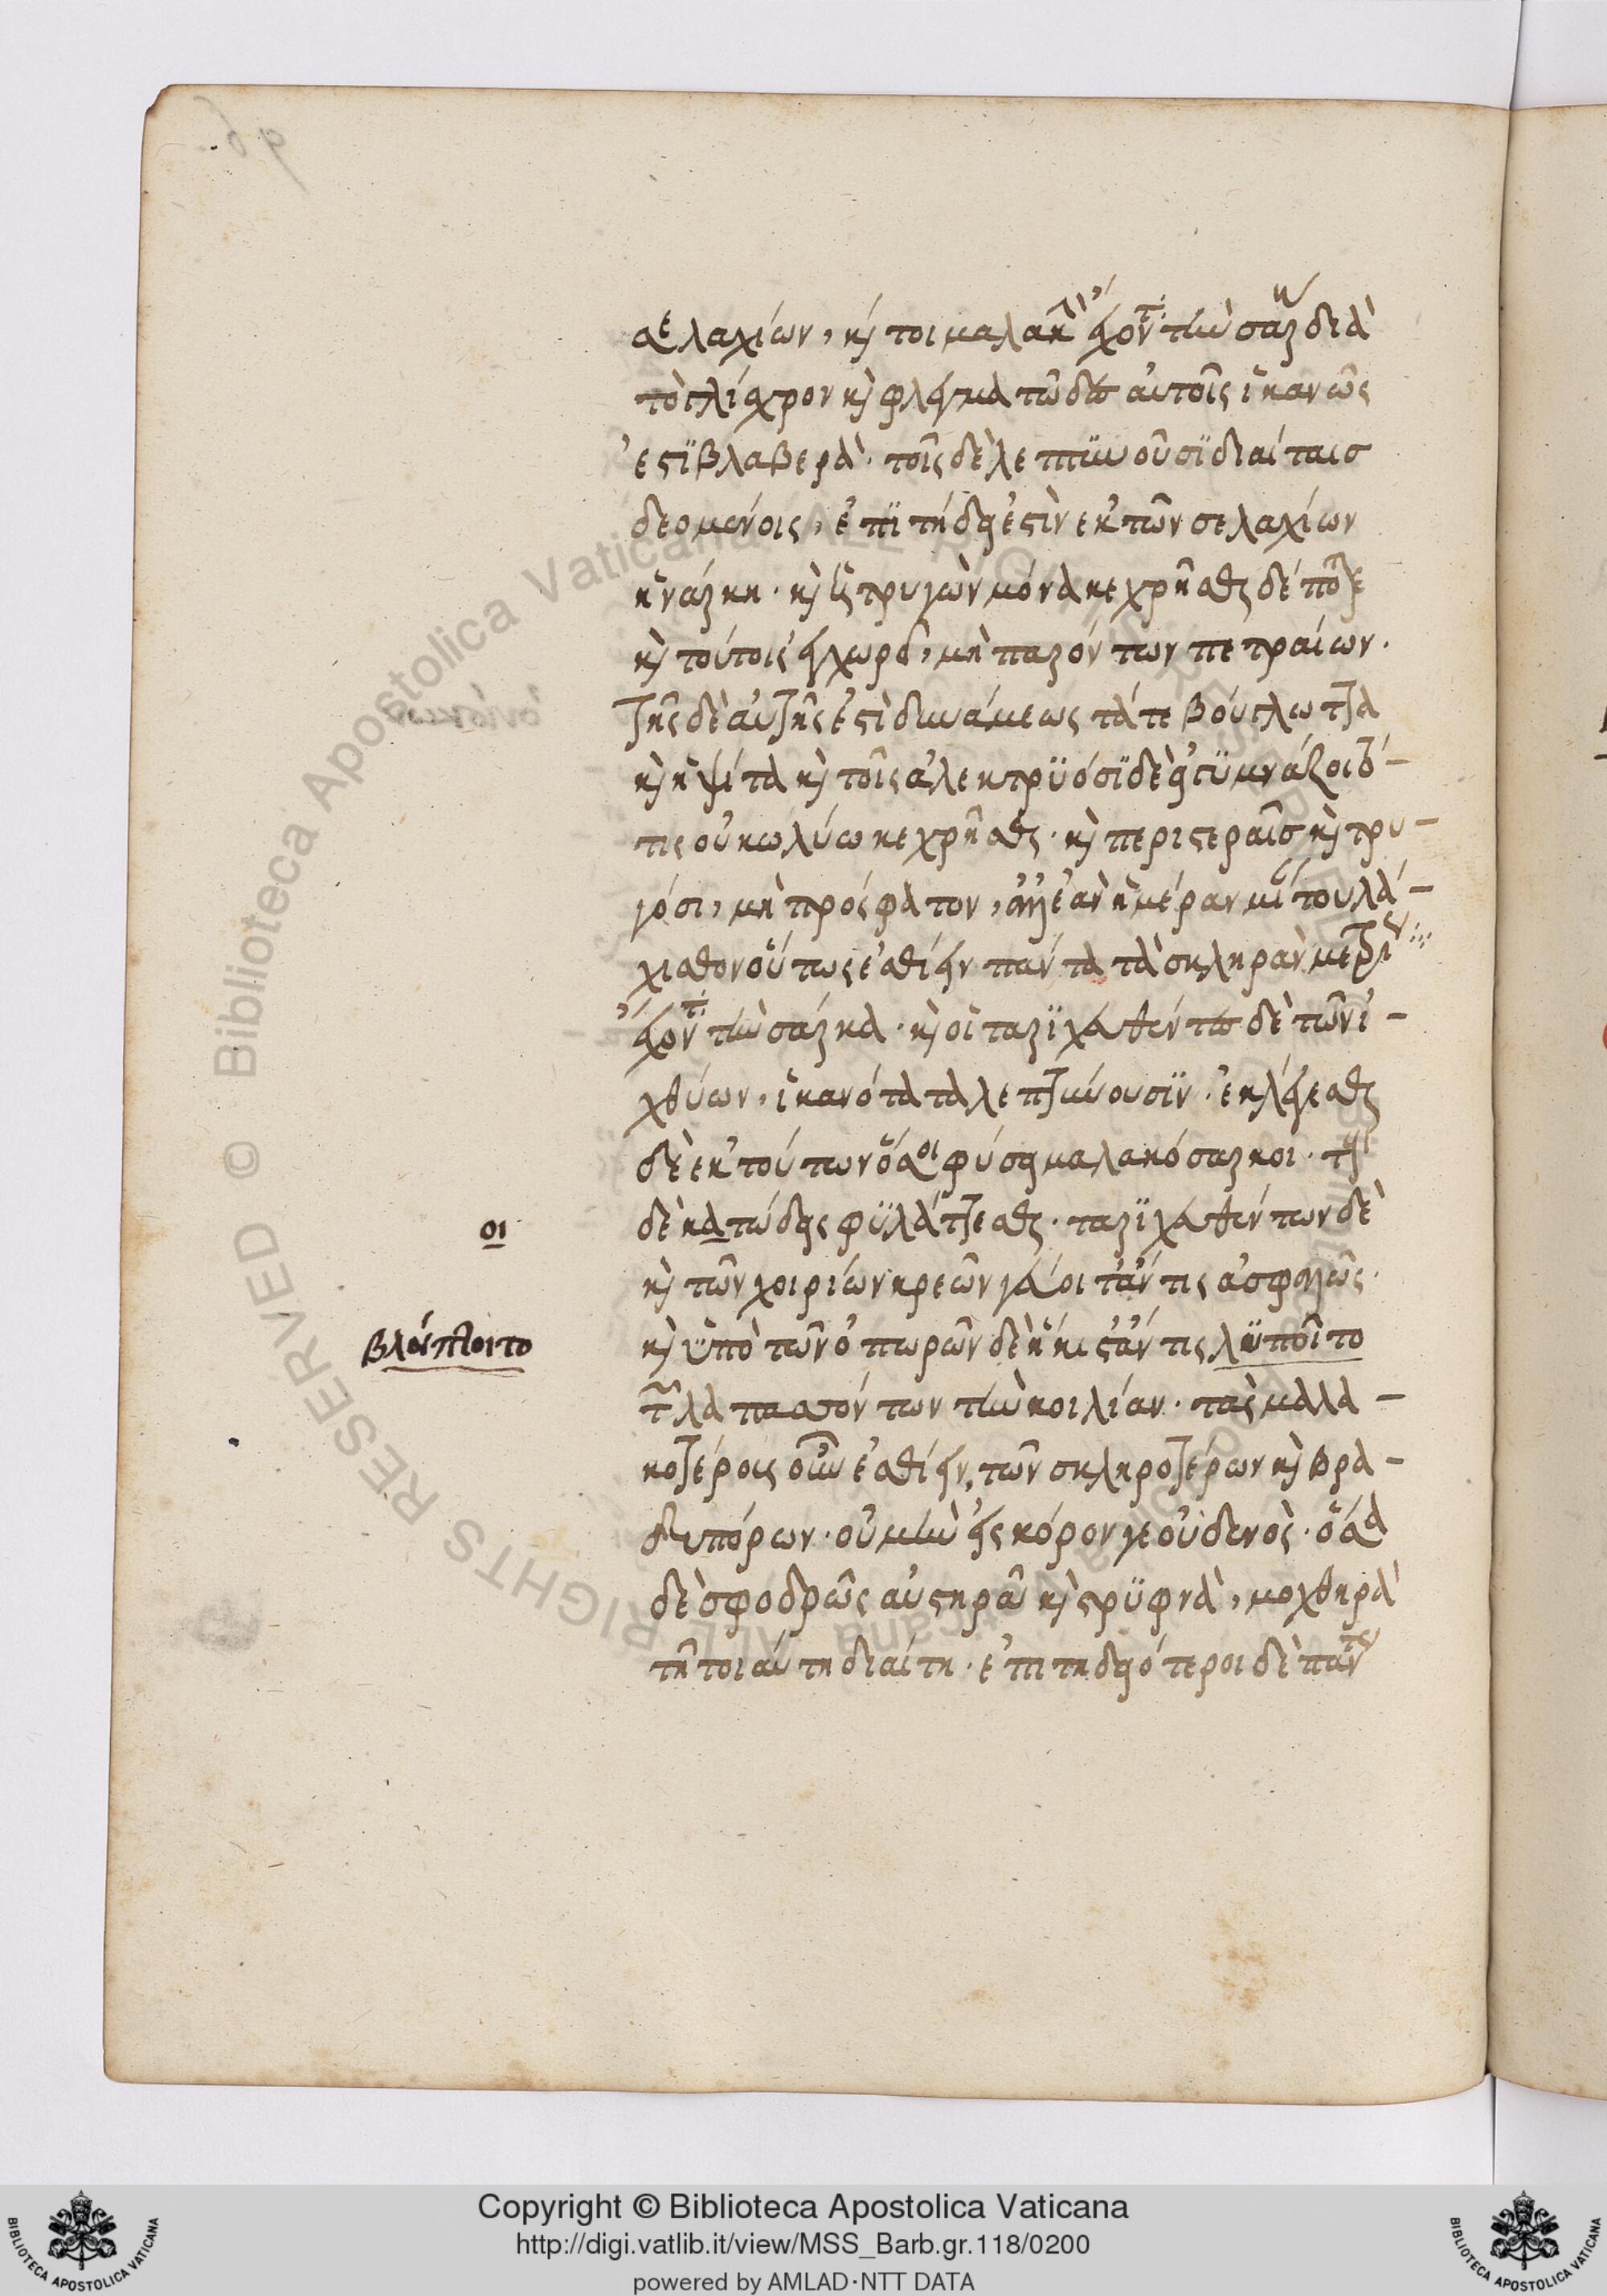 σελαχίων, καί τοι μαλακὴν ἔχοντα τὴν σάρκα διὰ
τὸ γλίσχρον καὶ φλεγματῶδες αὐτοῖς ἱκανῶς
ἐστὶ βλαβερά· τοῖς δὲ λεπτυνούσι διαίταις
δεομένοις, ἐπιτήδεια ἐστὶν ἐκ τῶν σελαχίων
ἡ νάρκη· καὶ ἡ τρυγὼν μόνα κεχρῆσθαι δέ ποτε
καὶ τούτοις ἐγχωρεῖ, μὴ παρόντων πετραίων.
τῆς δὲ αὐτῆς ἐστὶ δυνάμεως τά τε βούγλωττα
καὶ ἡ ψίττα καὶ τοῖς ἀλεκτρυόσι δὲ εἰ γυμνάζοιτό
τις οὐ κωλύω κεχρῆσθαι· καὶ περιστεραῖς καὶ τρυ-
γόσι, μὴ πρόσφατον, ἀλλ' ἐὰν ἡμέραν μίαν τουλά-
χισθον οὕτως ἐσθίειν πάντα τὰ σκληρὰν μὲν
ἔχοντα τὴν σάρκα· καὶ οἱ ταριχευθέντες δὲ τῶν ἰ-
χθύων, ἱκανότατα λεπτύνουσιν· ἐκλέγεσθαι
δὲ ἐκ τούτων ὅσοι φύσει μαλακόσαρκοι· τοὺς
δὲ κατώδεις φυλάττεσθαι· ταριχευθέντων δὲ
οι
καὶ τῶν χοιρίων κρεῶν γεύοιτ' ἄν τις ἀσφαλῶς·
βλάπτοιτο
καὶ ὑπὸ τῶν ὀπωρῶν δὲ ἥκιστ' ἄν τις λυποῖτο
τῶν λαπασσόντων τὴν κοιλίαν· τὰς μαλα-
κοτέροις οὖν ἐσθίειν, τῶν σκληροτέρων καὶ βρα-
δυπόρων· οὐ μὴν εἰς κόρον γε οὐδενός· ὅσα
δὲ σφοδρῶς αὐστηρὰ καὶ στρυφνὰ, μοχθηρὰ
τῇ τοιαύτῃ διαίτῃ· ἐπιτηδειότεροι δὲ πάντων